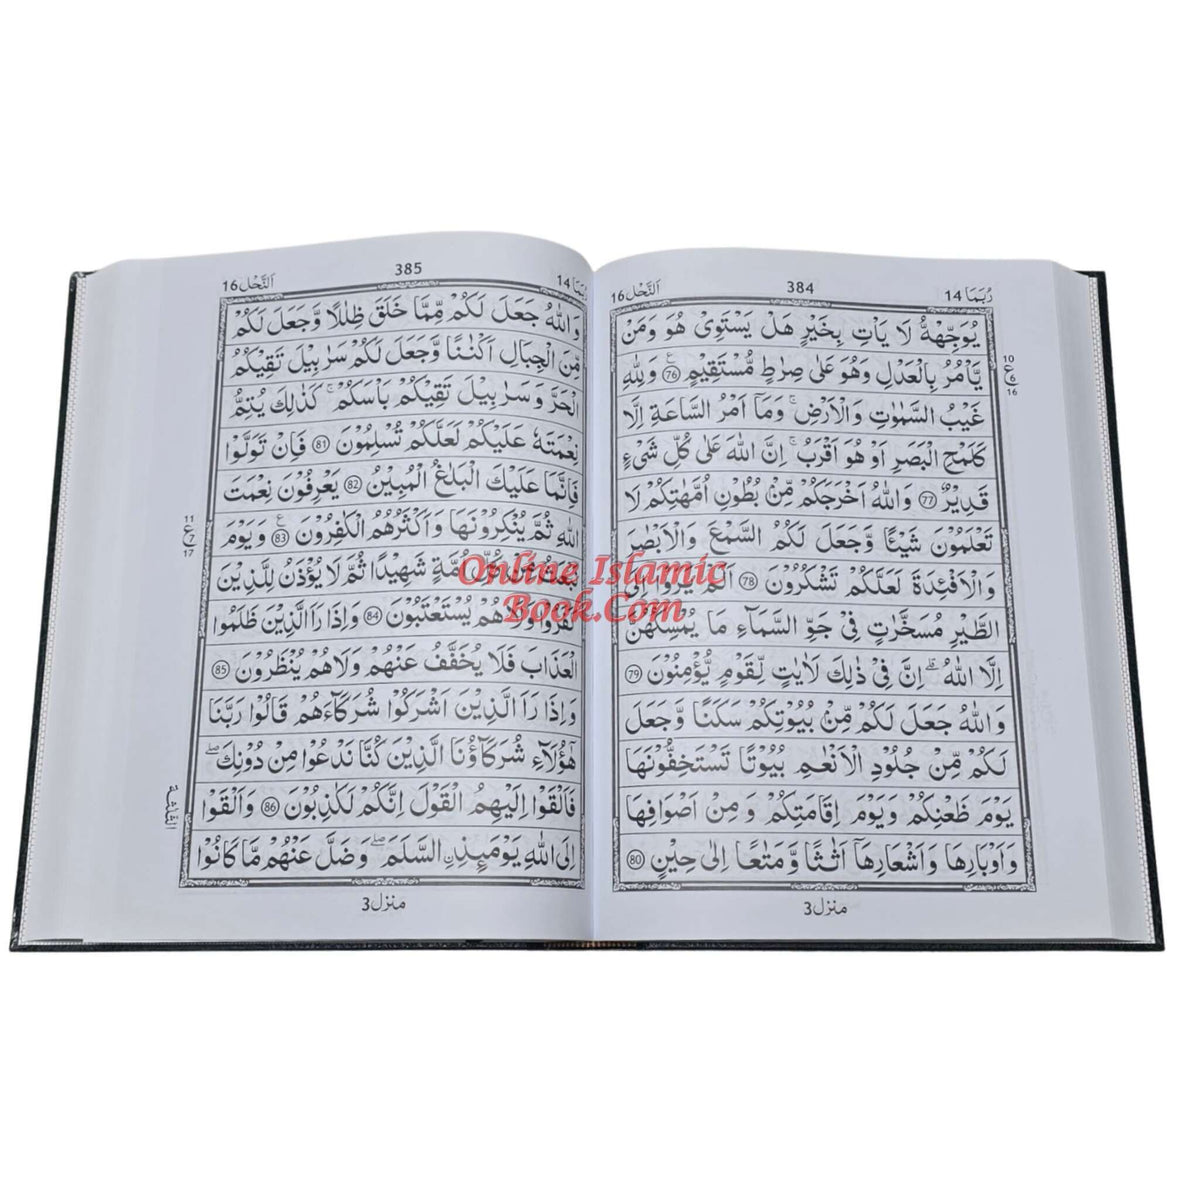 رُبَمَا 14
384
اَلنَّحْل 16
يُوَجِّهْهُّ لَا يَاْتِ بِخَيْرٍ هَلْ يَسْتَوِىْ هُوَ وَمَنْ
يَّاْمُرُ بِالْعَدْلِ وَهُوَ عَلٰى صِرٰطٍ مُّسْتَقِيْمٍ ع 76 وَلِلّٰهِ
غَيْبُ السَّمٰوٰتِ وَالْاَرْضِ ۚ وَمَآ اَمْرُ السَّاعَةِ اِلَّا
كَلَمْحِ الْبَصَرِ اَوْ هُوَ اَقْرَبُ ۚ اِنَّ اللّٰهَ عَلٰى كُلِّ شَىْءٍ
قَدِيْرٌ 77 وَاللّٰهُ اَخْرَجَكُمْ مِّنْۢ بُطُوْنِ اُمَّهٰتِكُمْ لَا
تَعْلَمُوْنَ شَيْئًا وَّجَعَلَ لَكُمُ السَّمْعَ وَالْاَبْصٰرَ
وَالْاَفْئِدَةَ لَعَلَّكُمْ تَشْكُرُوْنَ 78 اَلَمْ يَرَوْا اِلَى
الطَّيْرِ مُسَخَّرٰتٍ فِىْ جَوِّ السَّمَآءِ مَا يُمْسِكُهُنَّ
اِلَّا اللّٰهُ ؕ اِنَّ فِىْ ذٰلِكَ لَاٰيٰتٍ لِّقَوْمٍ يُّؤْمِنُوْنَ 79
وَاللّٰهُ جَعَلَ لَكُمْ مِّنْۢ بُيُوْتِكُمْ سَكَنًا وَّجَعَلَ
لَكُمْ مِّنْ جُلُوْدِ الْاَنْعٰمِ بُيُوْتًا تَسْتَخِفُّوْنَهَا
يَوْمَ ظَعْنِكُمْ وَيَوْمَ اِقَامَتِكُمْ وَمِنْ اَصْوَافِهَا
وَاَوْبَارِهَا وَاَشْعَارِهَآ اَثٰثًا وَّمَتٰعًا اِلٰى حِيْنٍ 80
منزل 3
10
ع 6
16
رُبَمَا 14
385
اَلنَّحْل 16
وَاللّٰهُ جَعَلَ لَكُمْ مِّمَّا خَلَقَ ظِلٰلًا وَّجَعَلَ لَكُمْ
مِّنَ الْجِبَالِ اَكْنٰنًا وَّجَعَلَ لَكُمْ سَرٰبِيْلَ تَقِيْكُمُ
الْحَرَّ وَسَرٰبِيْلَ تَقِيْكُمْ بَاْسَكُمْ ۚ كَذٰلِكَ يُتِمُّ
نِعْمَتَهٗ عَلَيْكُمْ لَعَلَّكُمْ تُسْلِمُوْنَ 81 فَاِنْ تَوَلَّوْا
فَاِنَّمَا عَلَيْكَ الْبَلٰغُ الْمُبِيْنُ 82 يَعْرِفُوْنَ نِعْمَتَ
اللّٰهِ ثُمَّ يُنْكِرُوْنَهَا وَاَكْثَرُهُمُ الْكٰفِرُوْنَ ع 83 وَيَوْمَ
اُمَّةٍ شَهِيْدًا ثُمَّ لَا يُؤْذَنُ لِلَّذِيْنَ
كَفَرُوْا وَلَاهُمْ يُسْتَعْتَبُوْنَ 84 وَاِذَا رَاَ الَّذِيْنَ ظَلَمُوا
الْعَذَابَ فَلَا يُخَفَّفُ عَنْهُمْ وَلَاهُمْ يُنْظَرُوْنَ 85
وَاِذَا رَاَ الَّذِيْنَ اَشْرَكُوْا شُرَكَآءَهُمْ قَالُوْا رَبَّنَا
هٰٓؤُلَآءِ شُرَكَآؤُنَا الَّذِيْنَ كُنَّا نَدْعُوْا مِنْ دُوْنِكَ ۖ
فَاَلْقَوْا اِلَيْهِمُ الْقَوْلَ اِنَّكُمْ لَكٰذِبُوْنَ 86 وَاَلْقَوْا
اِلَى اللّٰهِ يَوْمَىِٕذِ ۨالسَّلَمَ ۖ وَضَلَّ عَنْهُمْ مَّا كَانُوْا
منزل 3
11
ع 7
17
الثلثة
Online Islamic
Book.Com